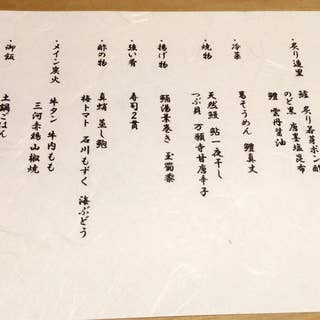 ・炙り造里
炙り若芽ポン酢
のど黒 唐墨塩昆布
鱧 雲丹醤油
・冷菜
葛そうめん 鱧真丈
・焼物
天然鰻 鮎一夜干し
つぶ貝 万願寺甘唐辛子
・揚げ物
湯葉巻き 玉蜀黍
・強い肴
寿司2貫
・酢の物
真蛸 蒸し鮑
梅トマト 石川もずく 海ぶどう
・メイン炭火
牛タン 牛内もも
三河赤鶏山椒焼
・御飯
土鍋ごはん